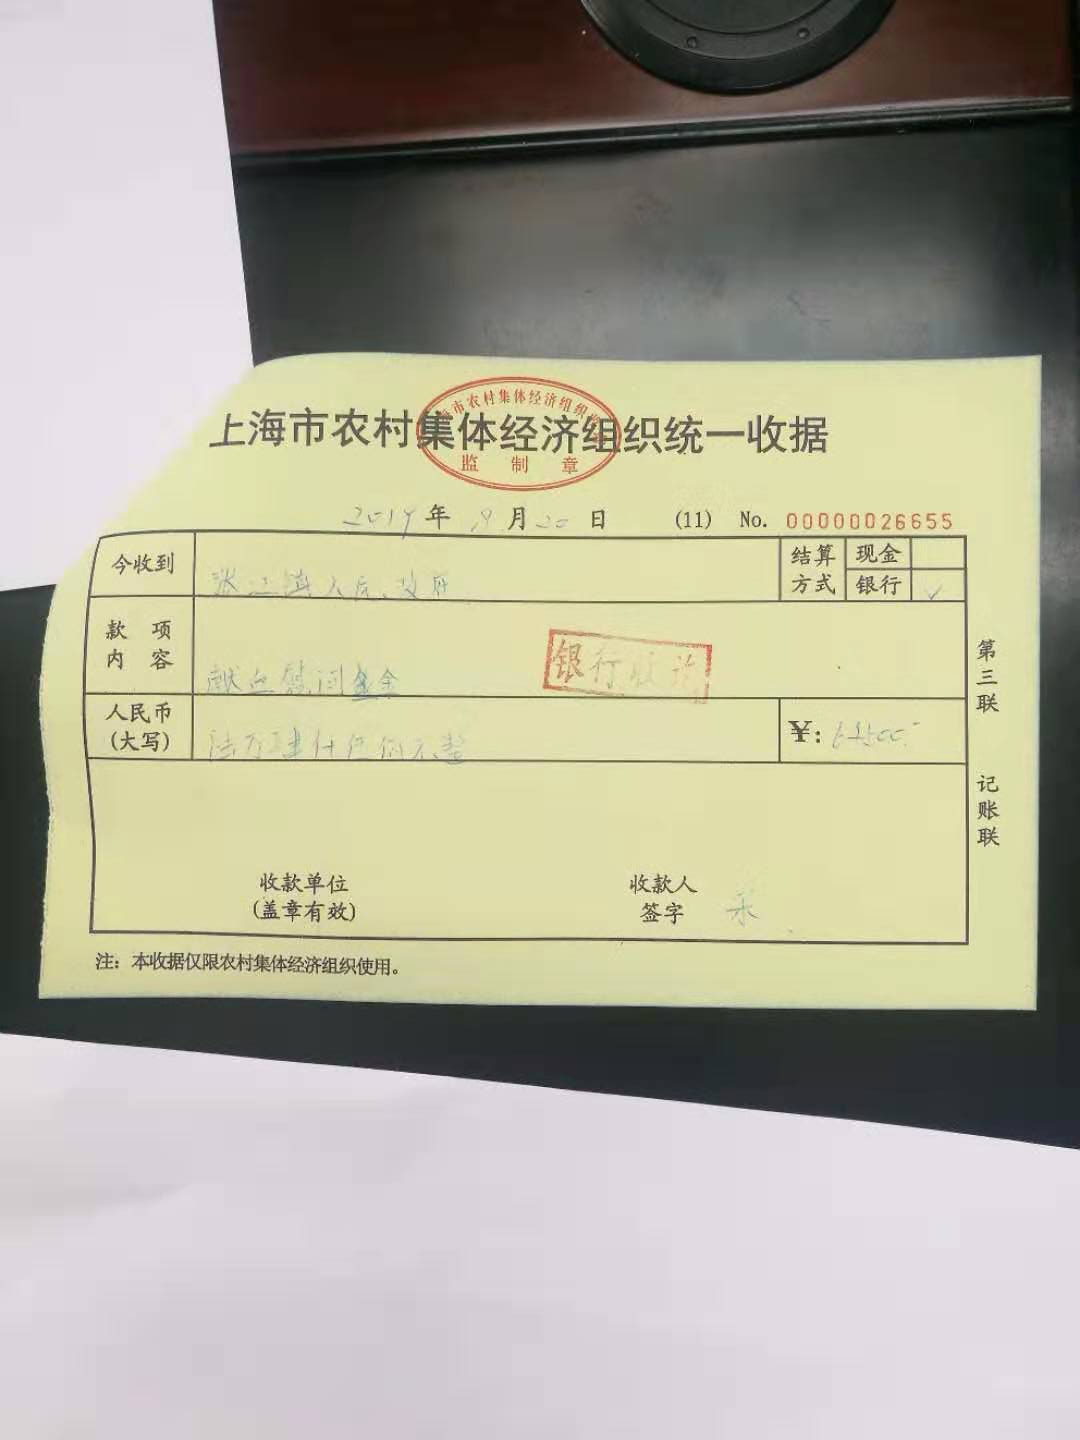 上海市农村集体经济组织统一收据
市农村集体经济组织收
监 制 章
2019年 9月20日 (11) No. 00000026655
今收到 张江镇人民政府
结算方式 现金
银行 ✓
款项内容 献血慰问金
银行收讫
人民币(大写) 陆万 仟伍佰元整 ¥: 500.-
收款单位
(盖章有效)
收款人
签字
第三联
记账联
注：本收据仅限农村集体经济组织使用。